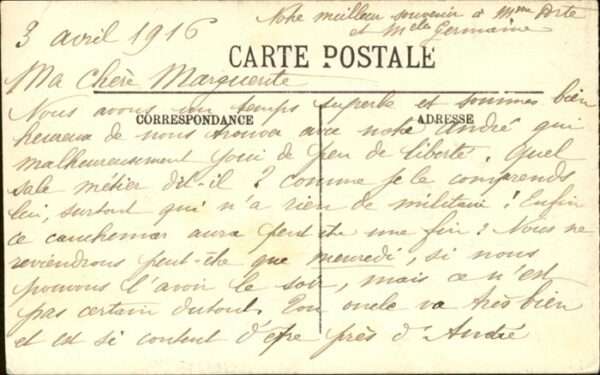 3 avril 1916
Notre meilleur souvenir à Mme
et Melle Germaine
CARTE POSTALE
Ma Chère Marguerite
CORRESPONDANCE
ADRESSE
Nous avons un temps superbe et sommes bien
heureux de nous trouver avec notre André qui
malheureusement joui de peu de liberté. Quel
sale métier dit-il ? Comme je le comprends
lui, surtout qui n'a rien de militaire ! Enfin
ce cauchemar aura peut-être une fin ? Nous ne
reviendrons peut-être que mercredi, si nous
pouvons l'avoir le soir, mais ce n'est
pas certain du tout. Ton oncle va très bien
et est si content d'être près d'André